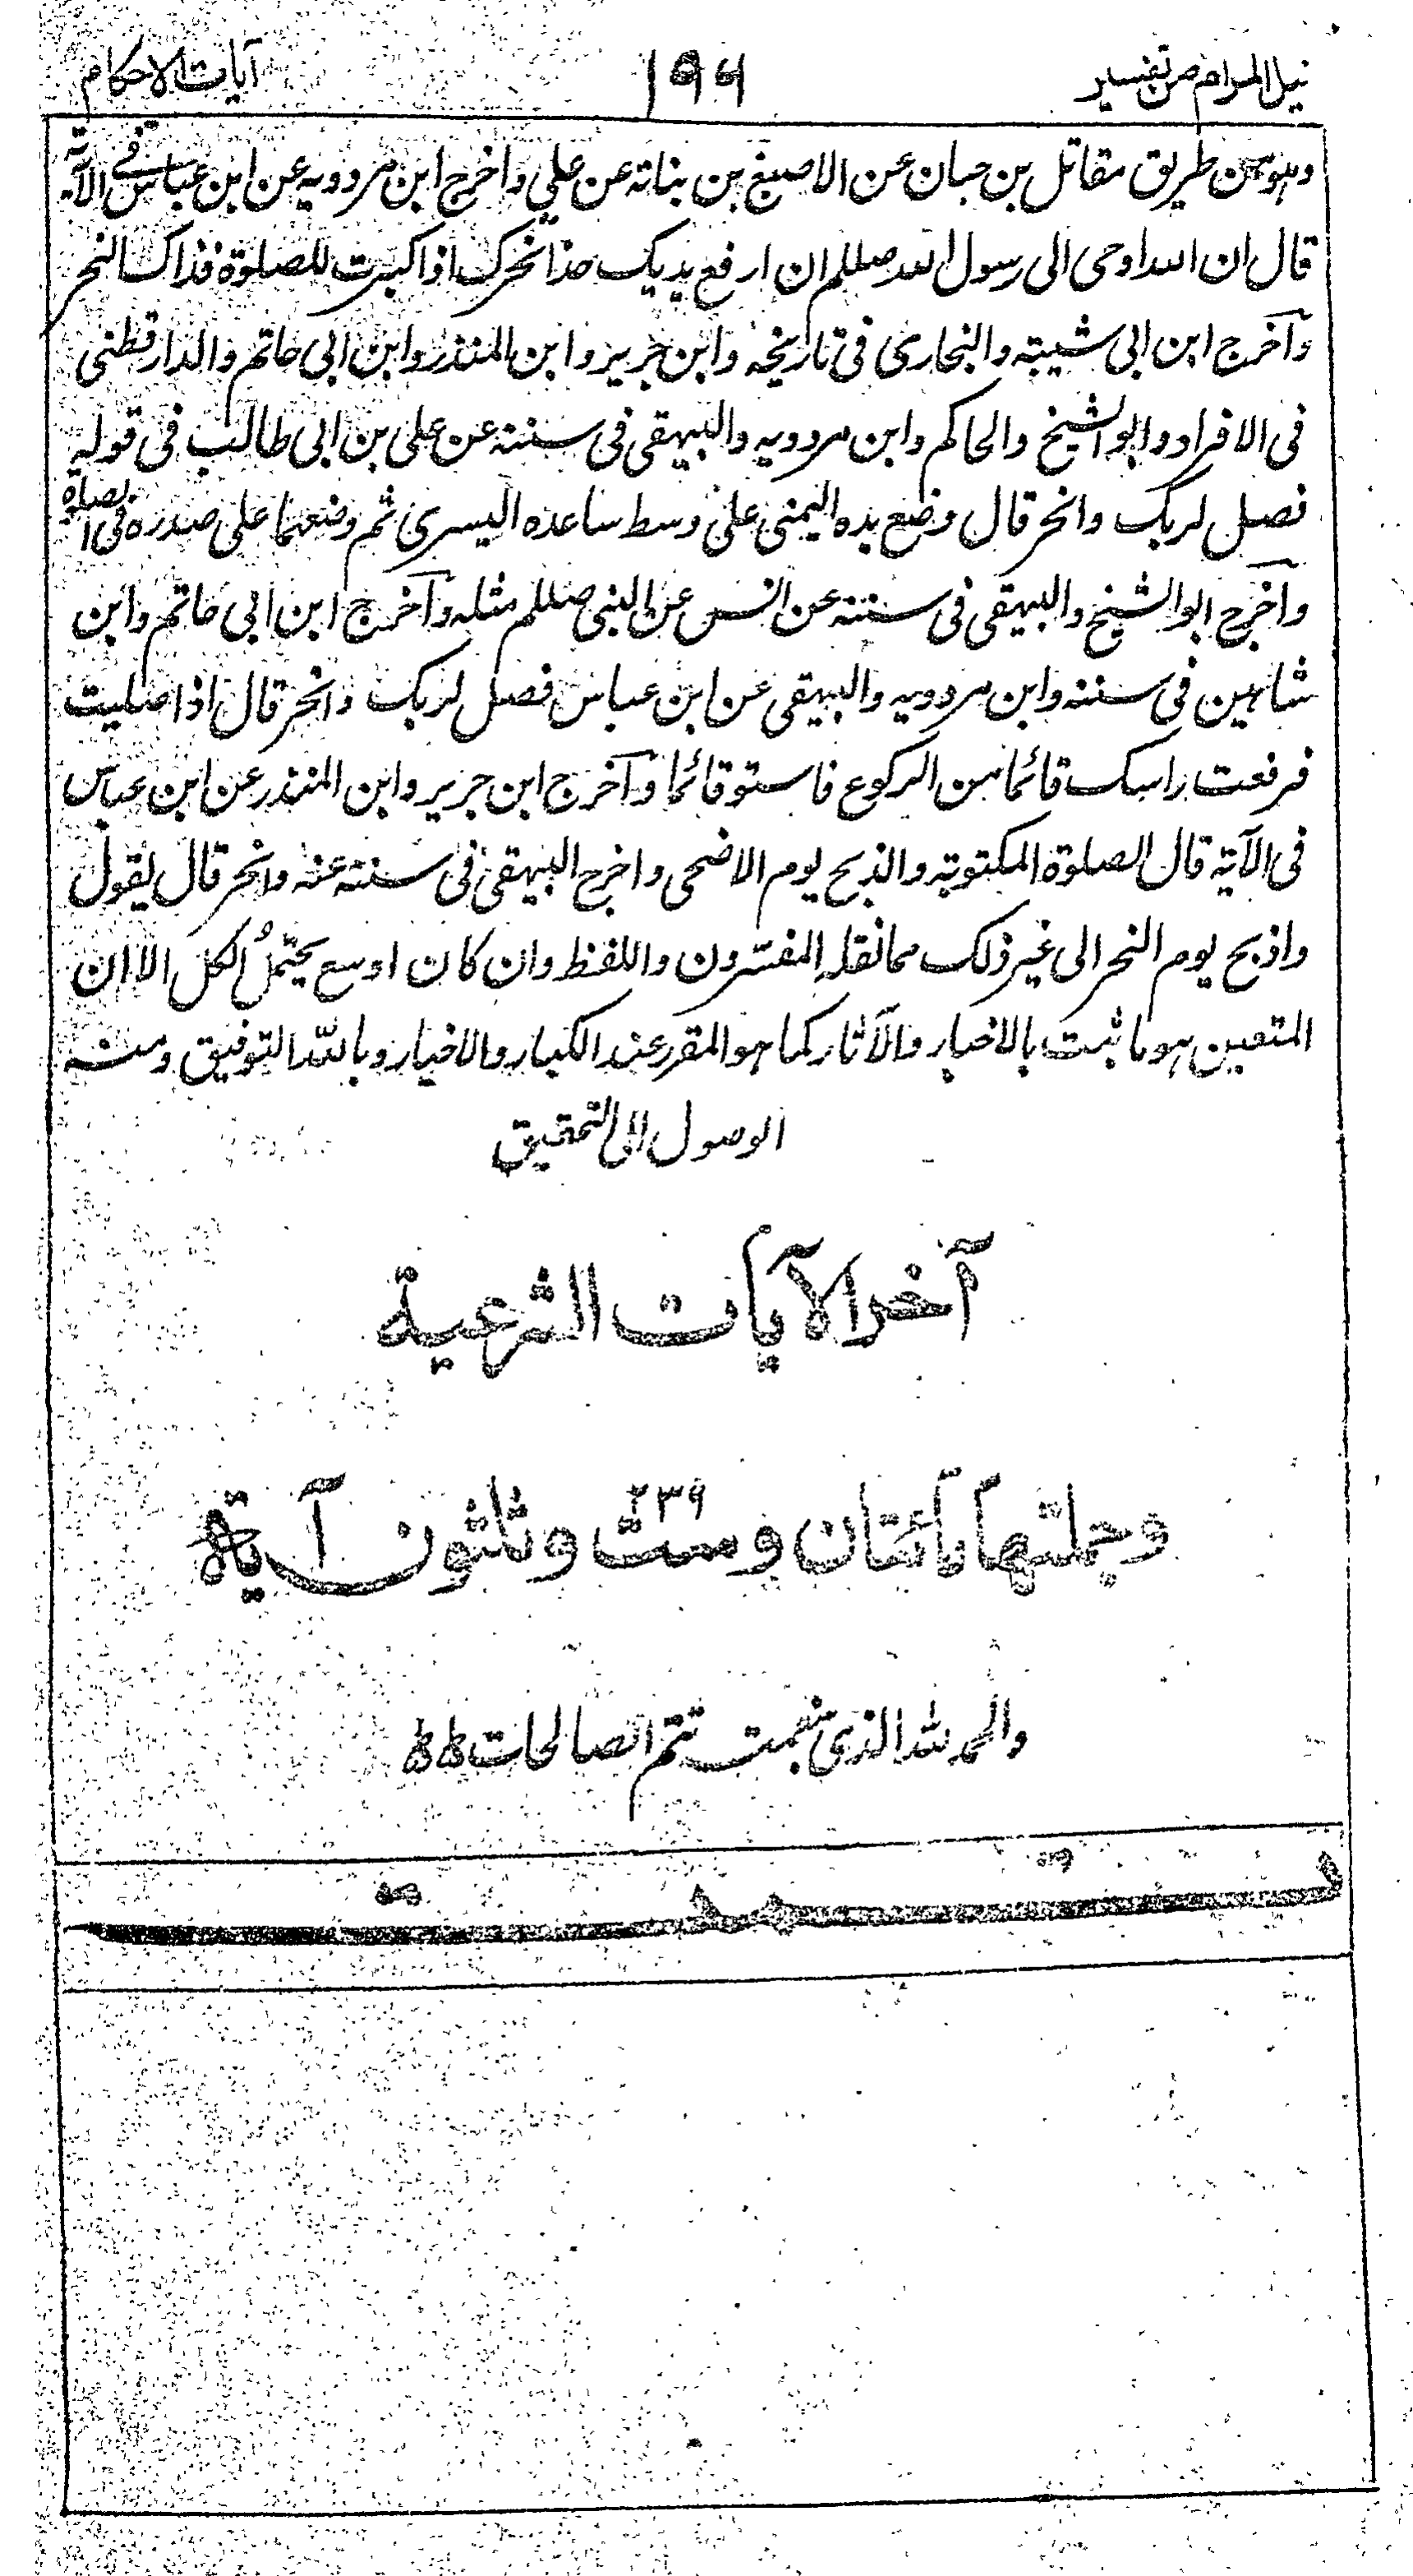 نيل المرام من تفسير
١٩٦
آيات الاحكام
وهو من طريق مقاتل بن حبان عن الاصبغ بن نباته عن علي واخرج ابن مردويه عن ابن عباس في الآية
قال ان الله اوحى الى رسول الله صللم ان ارفع يديك حذا نحرك اذا كبرت للصلوة فذاك النحر
وآخرج ابن ابي شيبته والبخارى فى تاريخه وابن جرير وابن المنذر وابن ابى حاتم والدار قطنى
فى الافراد وابو الشيخ والحاكم وابن مردويه والبيهقى فى سننه عن على بن ابى طالب فى قوله
فصل لربك وانحر قال وضع يده اليمنى على وسط ساعده اليسرى ثم وضعهما على صدره فى الصلوة
وآخرج ابو الشيخ والبيهقى فى سننه عن انس عن النبى صللم مثله وآخرج ابن ابى حاتم وابن
شاهين فى سننه وابن مردويه والبيهقى عن ابن عباس فصل لربك وانحر قال اذا صليت
فرفعت راسك قائما من الركوع فاستو قائما وآخرج ابن جرير وابن المنذر عن ابن عباس
فى الآية قال الصلوة المكتوبة والذبح يوم الاضحى واخرج البيهقى فى سننه عنه وانحر قال يقول
واذبح يوم النحر الى غير ذلك مما نقله المفسّرون واللفظ وان كان اوسع يحتملُ الكل الا ان
المتعين هو ما ثبت بالاخبار والآثار كما هو المقرر عند الكبار والاخيار وبالله التوفيق ومنه
الوصول الى التحقيق
آخر الآيات الشرعية
٢٣٦
وجملتها مأئتان وست وثلثون آية
والحمد لله الذى بنعمته تتم الصالحات
تمت